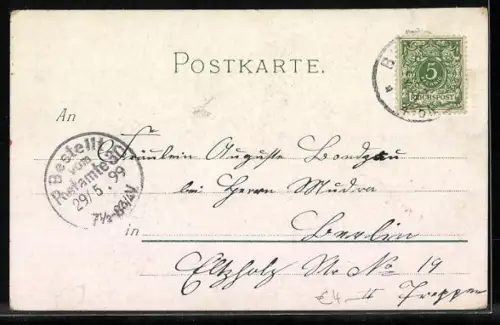 POSTKARTE.
5
REICHSPOST
An
Fräulein Auguste
bei Herrn Mudra
in Berlin
Str. No 19
II Treppen
Bestellt
vom
Postamte 30
29/5.99
7½-8¾N
€4